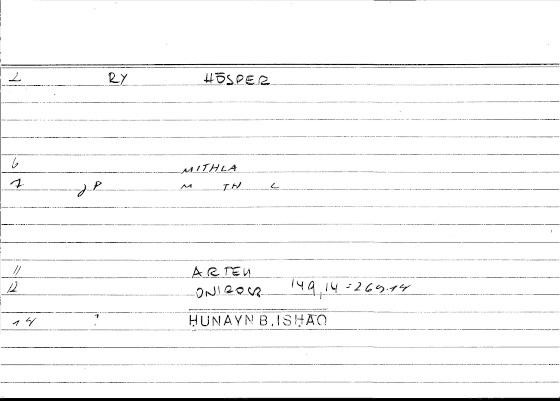 2 RY HŌSPER
6 MITHLA
7 JP M TH L
11 ARTEM
12 ONIROCR 149,14 = 269.14
14 ? ḤUNAYN B. ISḤĀQ